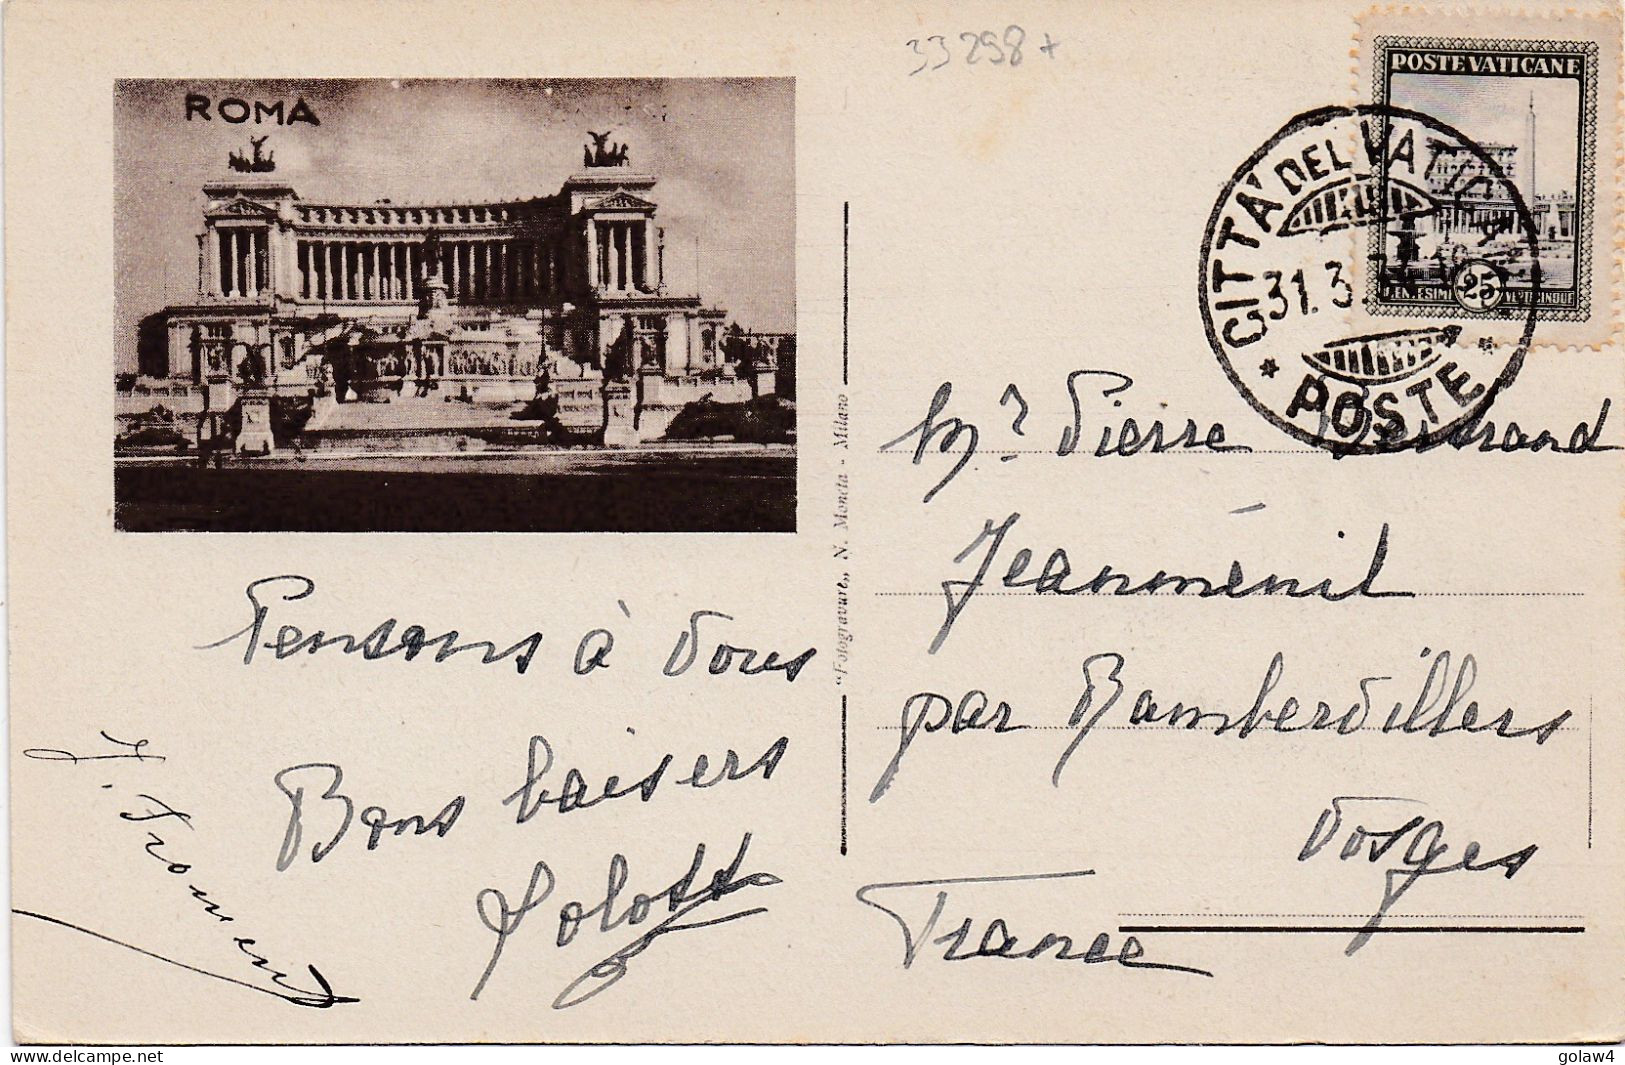 33298+
ROMA
POSTE VATICANE
CITTA' DEL VATICANO
31.3.
POSTE
25
CENTESIMI VENTICINQUE
"Fotogravure,, N. Moneta - Milano
Mr Pierre Bertrand
Jeanménil
par Rambervillers
Vosges
France
Pensons à vous
Bons baisers
J. Froment
golaw4
delcampe.net